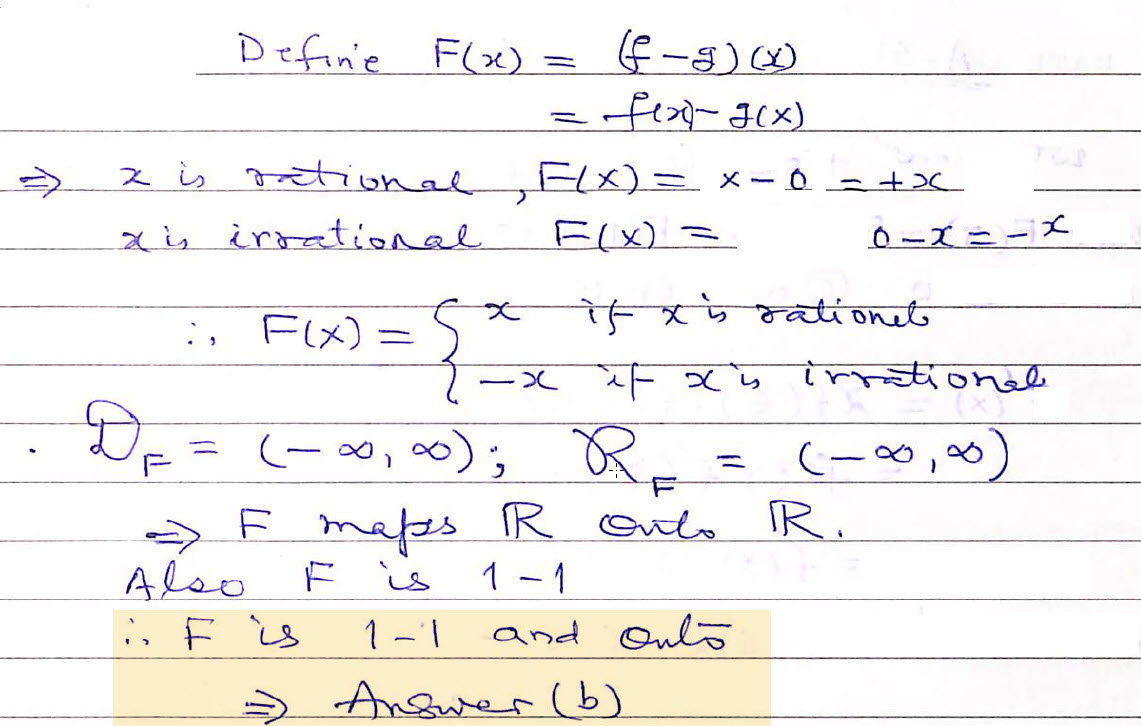 Define F(x) = (f - g) (x)
= f(x) - g(x)
⇒ x is rational, F(x) = x - 0 = +x
x is irrational F(x) = 0 - x = - x
∴ F(x) = { x if x is rational
-x if x is irrational
. D_F = (-∞, ∞); R_F = (-∞, ∞)
⇒ F maps ℝ onto ℝ.
Also F is 1-1
∴ F is 1-1 and onto
⇒ Answer (b)